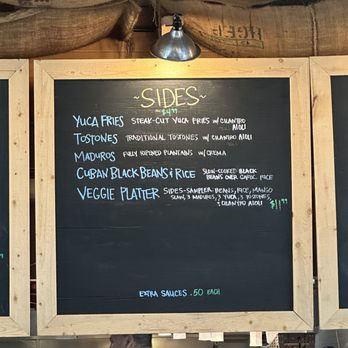 ~SIDES~
$4.99
YUCA FRIES STEAK-CUT YUCA FRIES W/ CILANTRO AIOLI
TOSTONES TRADITIONAL TOSTONES W/ CILANTRO AIOLI
MADUROS FULLY RIPENED PLANTAINS W/ CREMA
CUBAN BLACK BEANS & RICE SLOW-COOKED BLACK BEANS OVER GARLIC RICE
VEGGIE PLATTER SIDES-SAMPLER BEANS, RICE, MANGO
SLAW, 3 MADUROS, 3 YUCA, 3 TOSTONES,
& CILANTRO AIOLI $11.99
EXTRA SAUCES .50 EACH